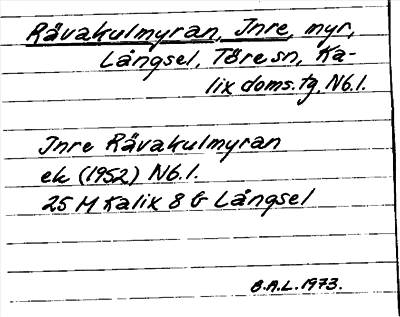 Rävakulmyran, Inre, myr,
Långsel, Töre sn, Ka-
lix doms.tg, Nb.l.
Inre Rävakulmyran
ek (1952) Nb.l.
25 M Kalix 8 G Långsel
B.A.L. 1973.